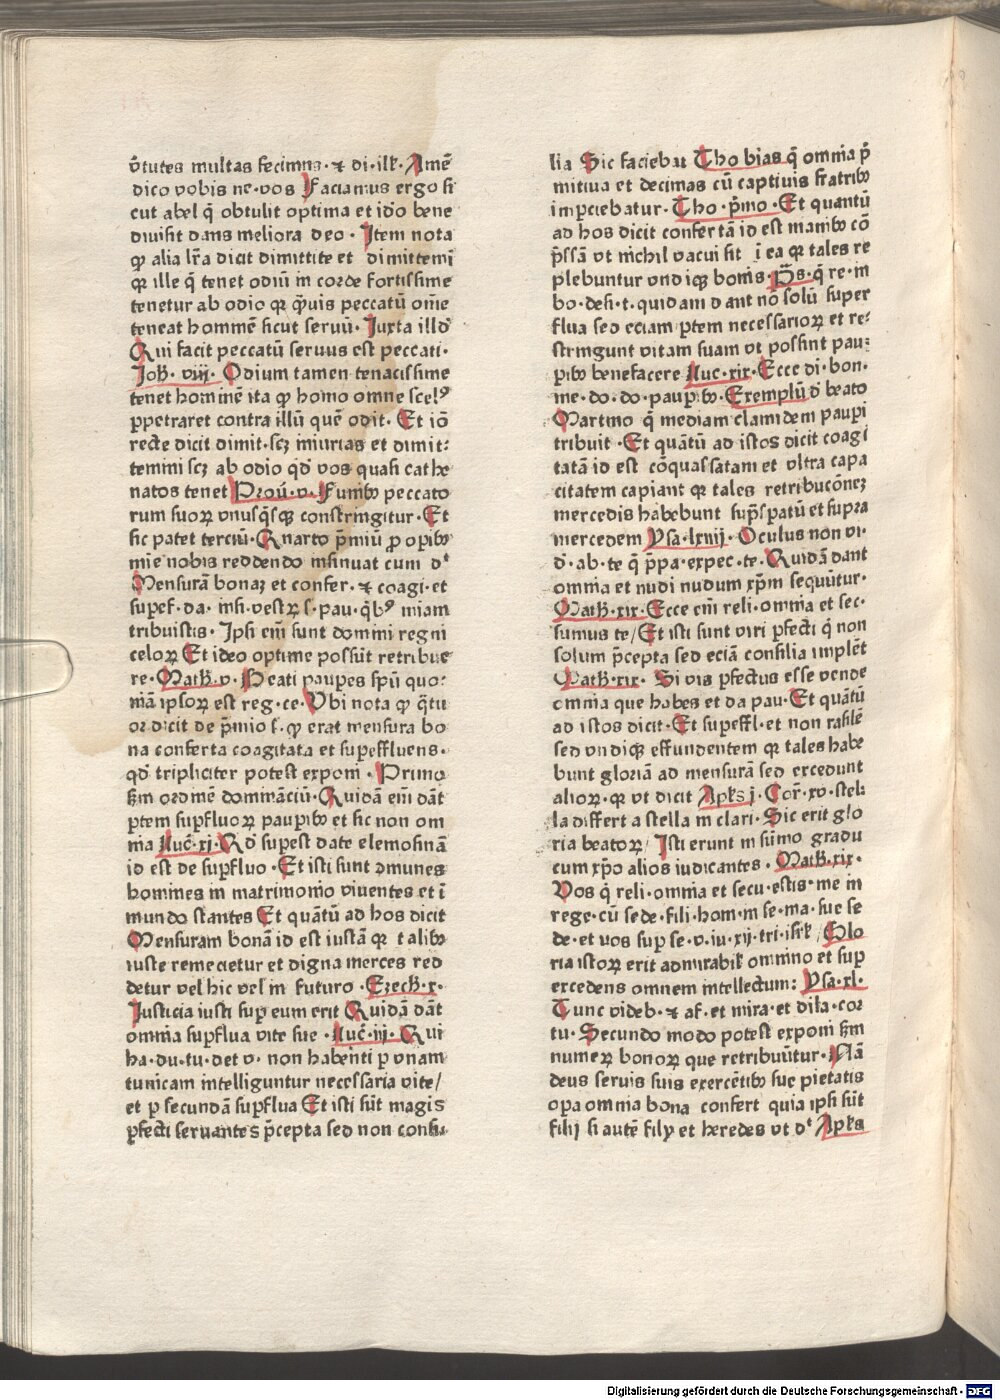 v̄tutes multas fecimus· ⁊ di·ilꝉ· Amē
dico vobis ne·vos Faciamus ergo si
cut abel q̄ obtulit optima et id̄o bene
diuisit dans meliora deo · Item nota
ꝙ alia lr̄a dicit dimittite et dimittemī
qꝛ ille q̄ tenet odiū in corde fortissime
tenetur ab odio qꝛ q̄uis peccatū om̄e
teneat hominē sicut seruū· Iuxta illd̄
Qui facit peccatū seruus est peccati·
Joh̄· viij· Odium tamen tenacissime
tenet hominē ita ꝙ homo omne scelꝰ
ꝑpetraret contra illū quē odit· Et iō
recte dicit dimit·scꝫ iniurias et dimit:
temini scꝫ ab odio qd̄ vos quasi cathe
natos tenet Prou̅·v· Funibꝰ peccato
rum suoꝝ vnusq̄sqꝫ constringitur· Et
sic patet terciū· Quarto p̄miū ꝓ oꝑibꝰ
mīe nobis reddendo insinuat cum dꝭ
Mensurā bonaꝫ et confer· ⁊ coagi·et
suꝑef·da· insi·vestꝝ s·pau·qbꝰ miam
tribuistis· Ipsi em̄ sunt domini regni
celoꝝ Et ideo optime possūt retribue
re· Math̄·v· Beati pauꝑes spū quo:
niā ipsoꝝ est reg·ce· Vbi nota ꝙ q̄tu
or dicit de p̄mio s· ꝙ erat mensura bo
na conferta coagitata et suꝑeffluens·
qd̄ tripliciter potest exponi · Primo
scd̄m ordinē dominānciū· Quidā em̄ dāt
ꝑtem suꝑfluoꝝ pauꝑibꝰ et sic non om
nia Luc̄·xj· Qd̄ suꝑest date elemosinā
id est de suꝑfluo · Et isti sunt ꝯmunes
homines in matrimonio viuentes et ī
mundo stantes Et quātū ad hos dicit
Mensuram bonā id est iustā qꝛ talibꝰ
iuste remecietur et digna merces red
detur vel hic vel in futuro · Ezech̄·x·
Iusticia iusti suꝑ eum erit Quidā dāt
omnia suꝑflua vite sue · Luc̄·iij· Qui
ha·du·tu·det v· non habenti ꝑ vnam
tunicam intelliguntur necessaria vite/
et ꝑ secundā suꝑflua Et isti sūt magis
ꝑfecti seruantes p̄cepta sed non consi·
lia Sic faciebat Thobias q̄ omnia p̄
mitiua et decimas cū captiuis fratribꝰ
imꝑciebatur· Tho·p̄mo ·Et quantū
ad hos dicit confertā id est manibꝰ cō
p̄ssā vt nichil vacui sit ī ea qꝛ tales re
plebuntur vndiqꝫ bonis· Ps̄· q̄ re·in
bo·desi·t· quidam dant nō solū super
flua sed eciam ꝑtem necessarioꝝ et re:
stringunt vitam suam vt possint pau:
ꝑibꝰ benefacere Luc·xix· Ecce di·bon·
me·do·do·pauꝑ·bꝰ· Exemplū d̄ beato
Martino q̄ mediam clamidem pauꝑi
tribuit · Et quātū ad istos dicit coagi
tatā id est cōquassatam et vltra capa
citatem capiant qꝛ tales retribucōneꝫ
mercedis habebunt suꝑspatū et supra
mercedem Ysa·lxiiij· Oculus non vi·
d̄·ab·te q̄ p̄pa·expec·te· Quidā dant
omnia et nudi nudum xp̄m sequūtur·
Math̄·xix· Ecce em̄ reli·omnia et sec·
sumus te/ Et isti sunt viri ꝑfecti q̄ non
solum p̄cepta sed eciā consilia implēt
Math̄·xix· Si vis ꝑfectus esse vende
omnia que habes et da pau· Et quātū
ad istos dicit· Et suꝑeffl·et non rasilē
sed vndiqꝫ effundentem qꝛ tales habe
bunt gloriā ad mensurā sed excedunt
alioꝝ·qꝛ vt dicit Apl̄s j· Cor̄·xv·stel:
la differt a stella in clari· Sic erit glo
ria beatoꝝ/ Isti erunt in sūmo gradu
cum xp̄o alios iudicantes · Math̄·xix·
Vos q̄ reli·omnia et secu·estis·me in
rege·cū sede·fili·hom·in se·ma·sue se
de·et vos suꝑ se·v·iu·xij·tri·isrl̄/ Glo
ria istoꝝ erit admirabilꝭ omnino et suꝑ
excedens omnem intellectum: Ysa·xl·
Tunc videb·⁊ af·et mira·et dila·cor
tu· Secundo modo potest exponi scd̄m
numeꝝ bonoꝝ que retribuūtur· Nā
deus seruis suis exercētibꝰ sue pietatis
opa omnia bona confert quia ipsi sūt
filij si autē filij et heredes vt dꝭ Apl̄s
Digitalisierung gefördert durch die Deutsche Forschungsgemeinschaft - DFG